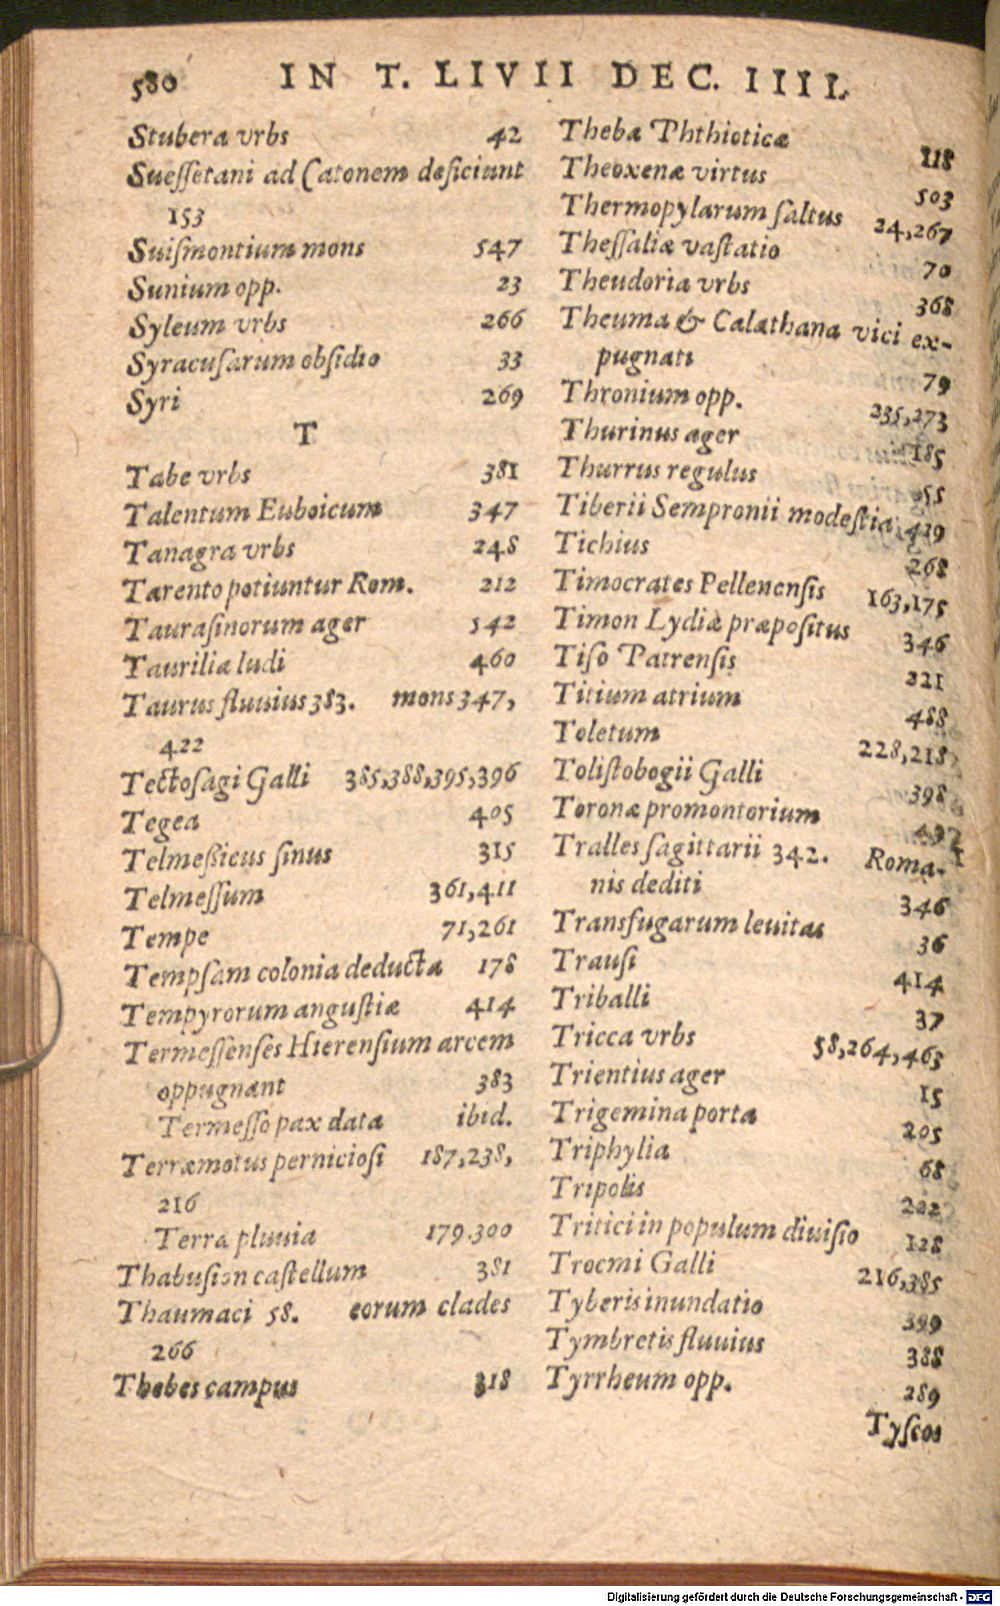 580 IN T. LIVII DEC. IIII.
Stubera vrbs 42
Suessetani ad Catonem deficiunt
153
Suismontium mons 547
Sunium opp. 23
Syleum vrbs 266
Syracusarum obsidio 33
Syri 269
T
Tabe vrbs 381
Talentum Euboicum 347
Tanagra vrbs 248
Tarento potiuntur Rom. 212
Taurasinorum ager 542
Taurilia ludi 460
Taurus fluuius 383. mons 347,
422
Tectosagi Galli 385,388,395,396
Tegea 405
Telmessicus sinus 315
Telmessum 361,411
Tempe 71,261
Tempsam colonia deducta 178
Tempyrorum angustiæ 414
Termessenses Hierensium arcem
oppugnant 383
Termesso pax data ibid.
Terræmotus perniciosi 187,238,
216
Terra pluuia 179.300
Thabusion castellum 381
Thaumaci 58. eorum clades
266
Thebes campus 318
Thebæ Phthioticæ 118
Theoxenæ virtus 503
Thermopylarum saltus 24,267
Thessaliæ vastatio 70
Theudoria vrbs 368
Theuma & Calathana vici ex-
pugnati 79
Thronium opp. 235,273
Thurinus ager 185
Thurrus regulus 55
Tiberii Sempronii modestia 419
Tichius 268
Timocrates Pellenensis 163,175
Timon Lydiæ præpositus 346
Tiso Patrensis 221
Titium atrium 488
Toletum 228,218
Tolistobogii Galli 398
Toronæ promontorium
Tralles sagittarii 342. Roma-
nis dediti 346
Transfugarum leuitas 36
Trausi 414
Triballi 37
Tricca vrbs 58,264,463
Trientius ager 15
Trigemina porta 205
Triphylia 68
Tripolis 202
Tritici in populum diuisio 128
Trocmi Galli 216,385
Tyberis inundatio 399
Tymbretis fluuius 388
Tyrrheum opp. 289
Tyscos
Digitalisierung gefördert durch die Deutsche Forschungsgemeinschaft - DFG